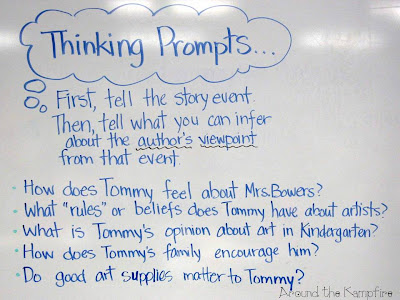 Thinking Prompts...
First, tell the story event.
Then, tell what you can infer
about the author's viewpoint
from that event.
• How does Tommy feel about Mrs. Bowers?
• What "rules" or beliefs does Tommy have about artists?
• What is Tommy's opinion about art in Kindergarten?
• How does Tommy's family encourage him?
• Do good art supplies matter to Tommy?
Around the Kampfire